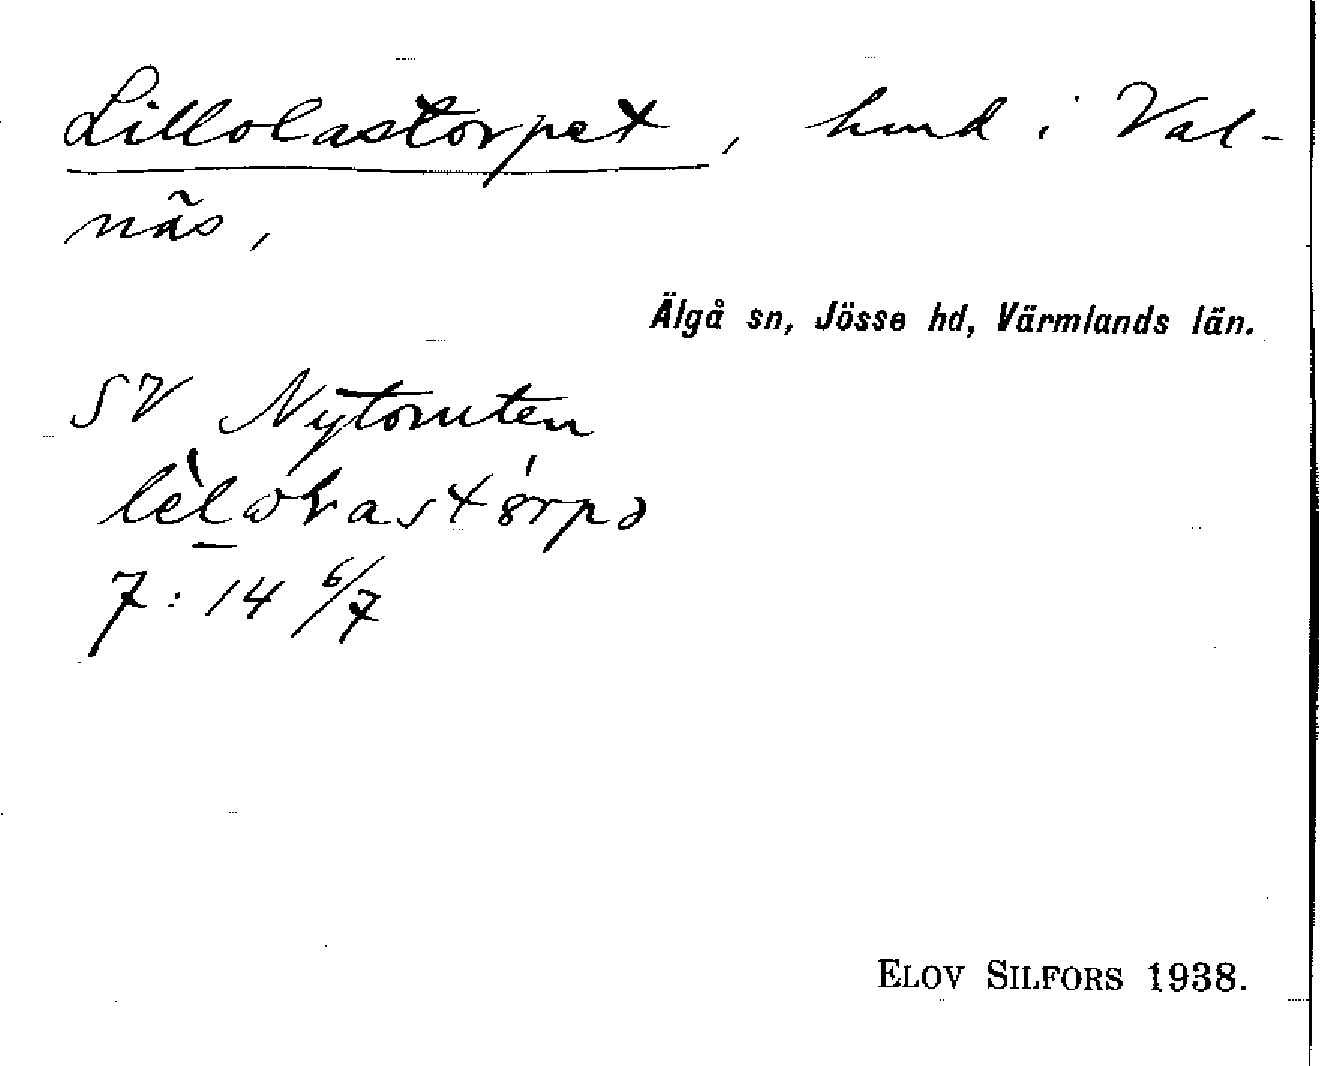 Lillolastorpet, hmd i Val-
näs,
Älgå sn, Jösse hd, Värmlands län.
SV Nytomten
7: 14 6/7
ELOV SILFORS 1938.